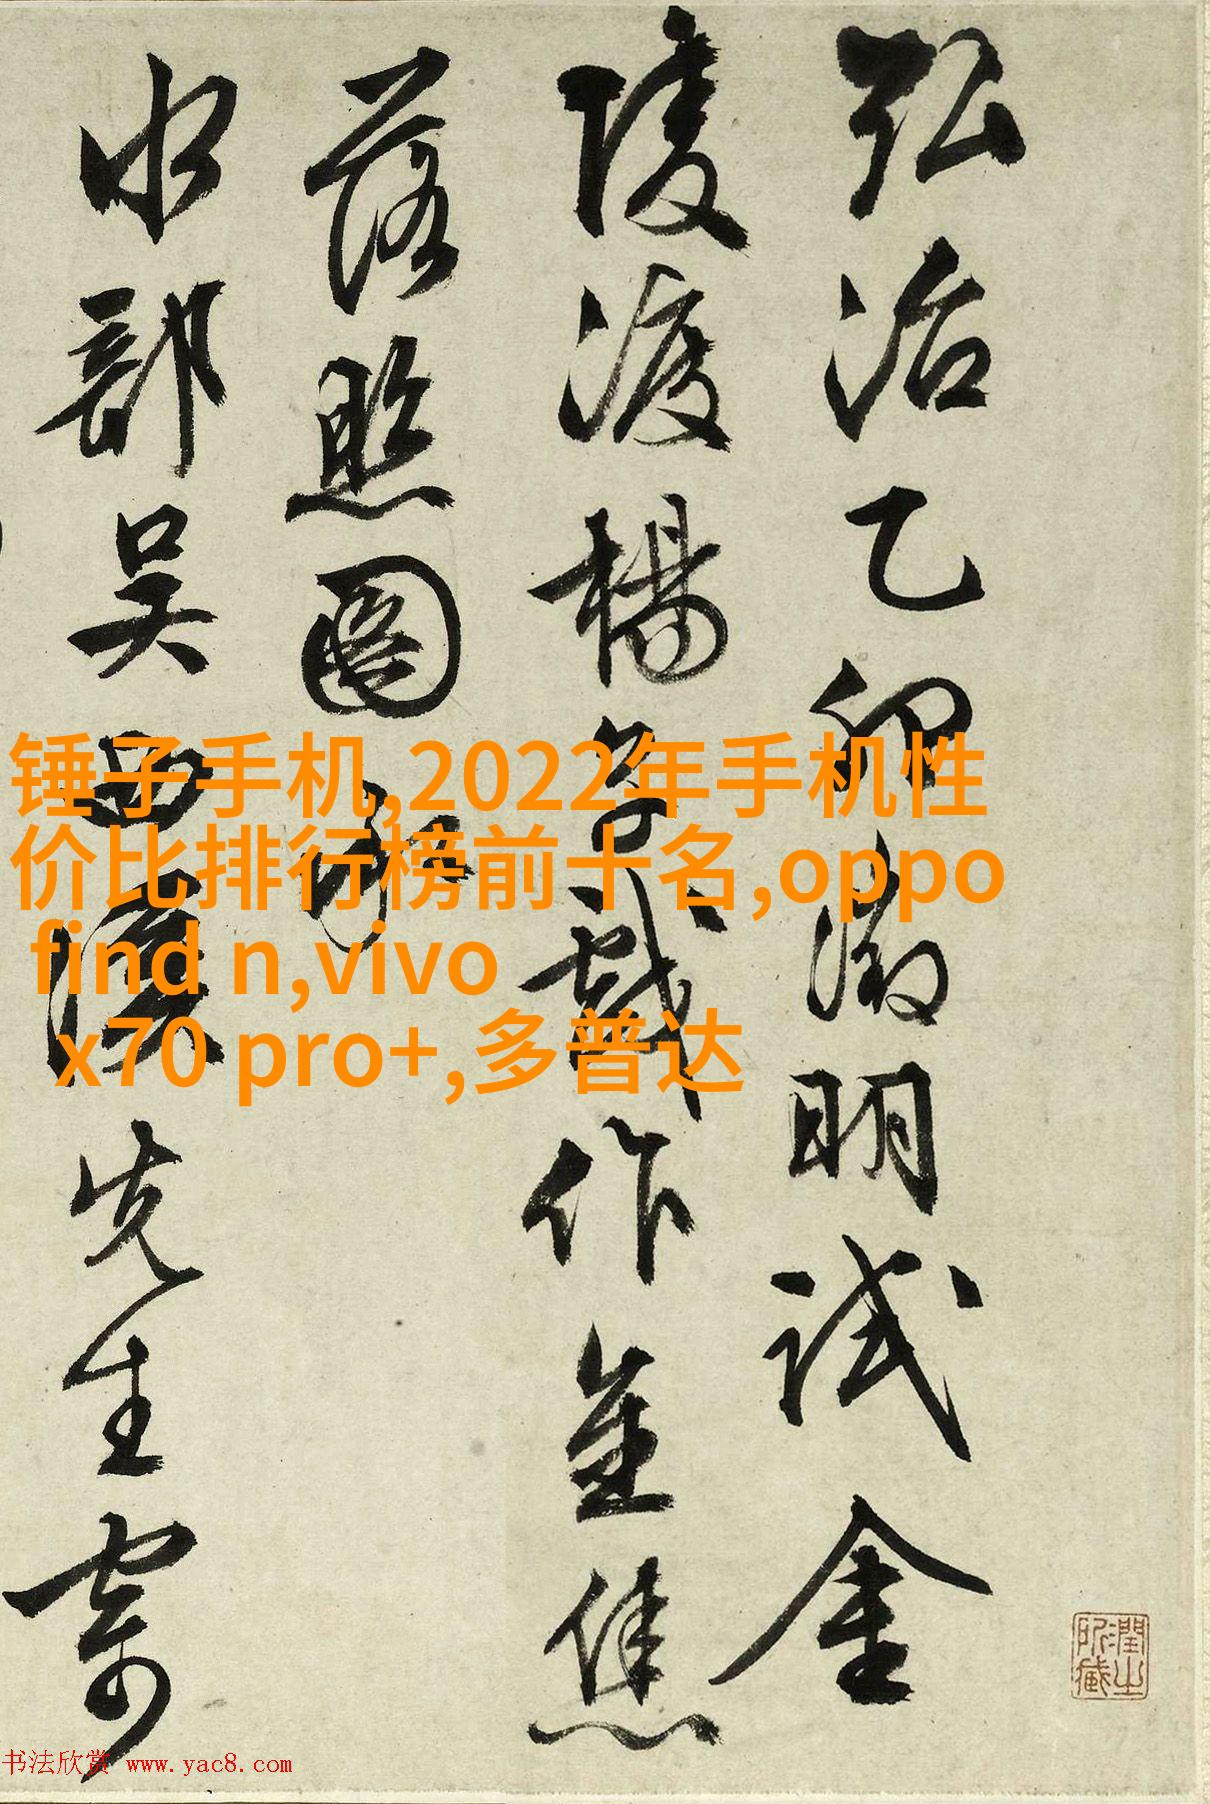 弘治乙卯徵明試金
陵渡楊子戲作金焦
落照圖
水部吳西溪先生寄
锤子手机,2022年手机性
价比排行榜前十名,oppo
find n,vivo
x70 pro+,多普达
潤之所藏
书法欣赏 www.yac8.com